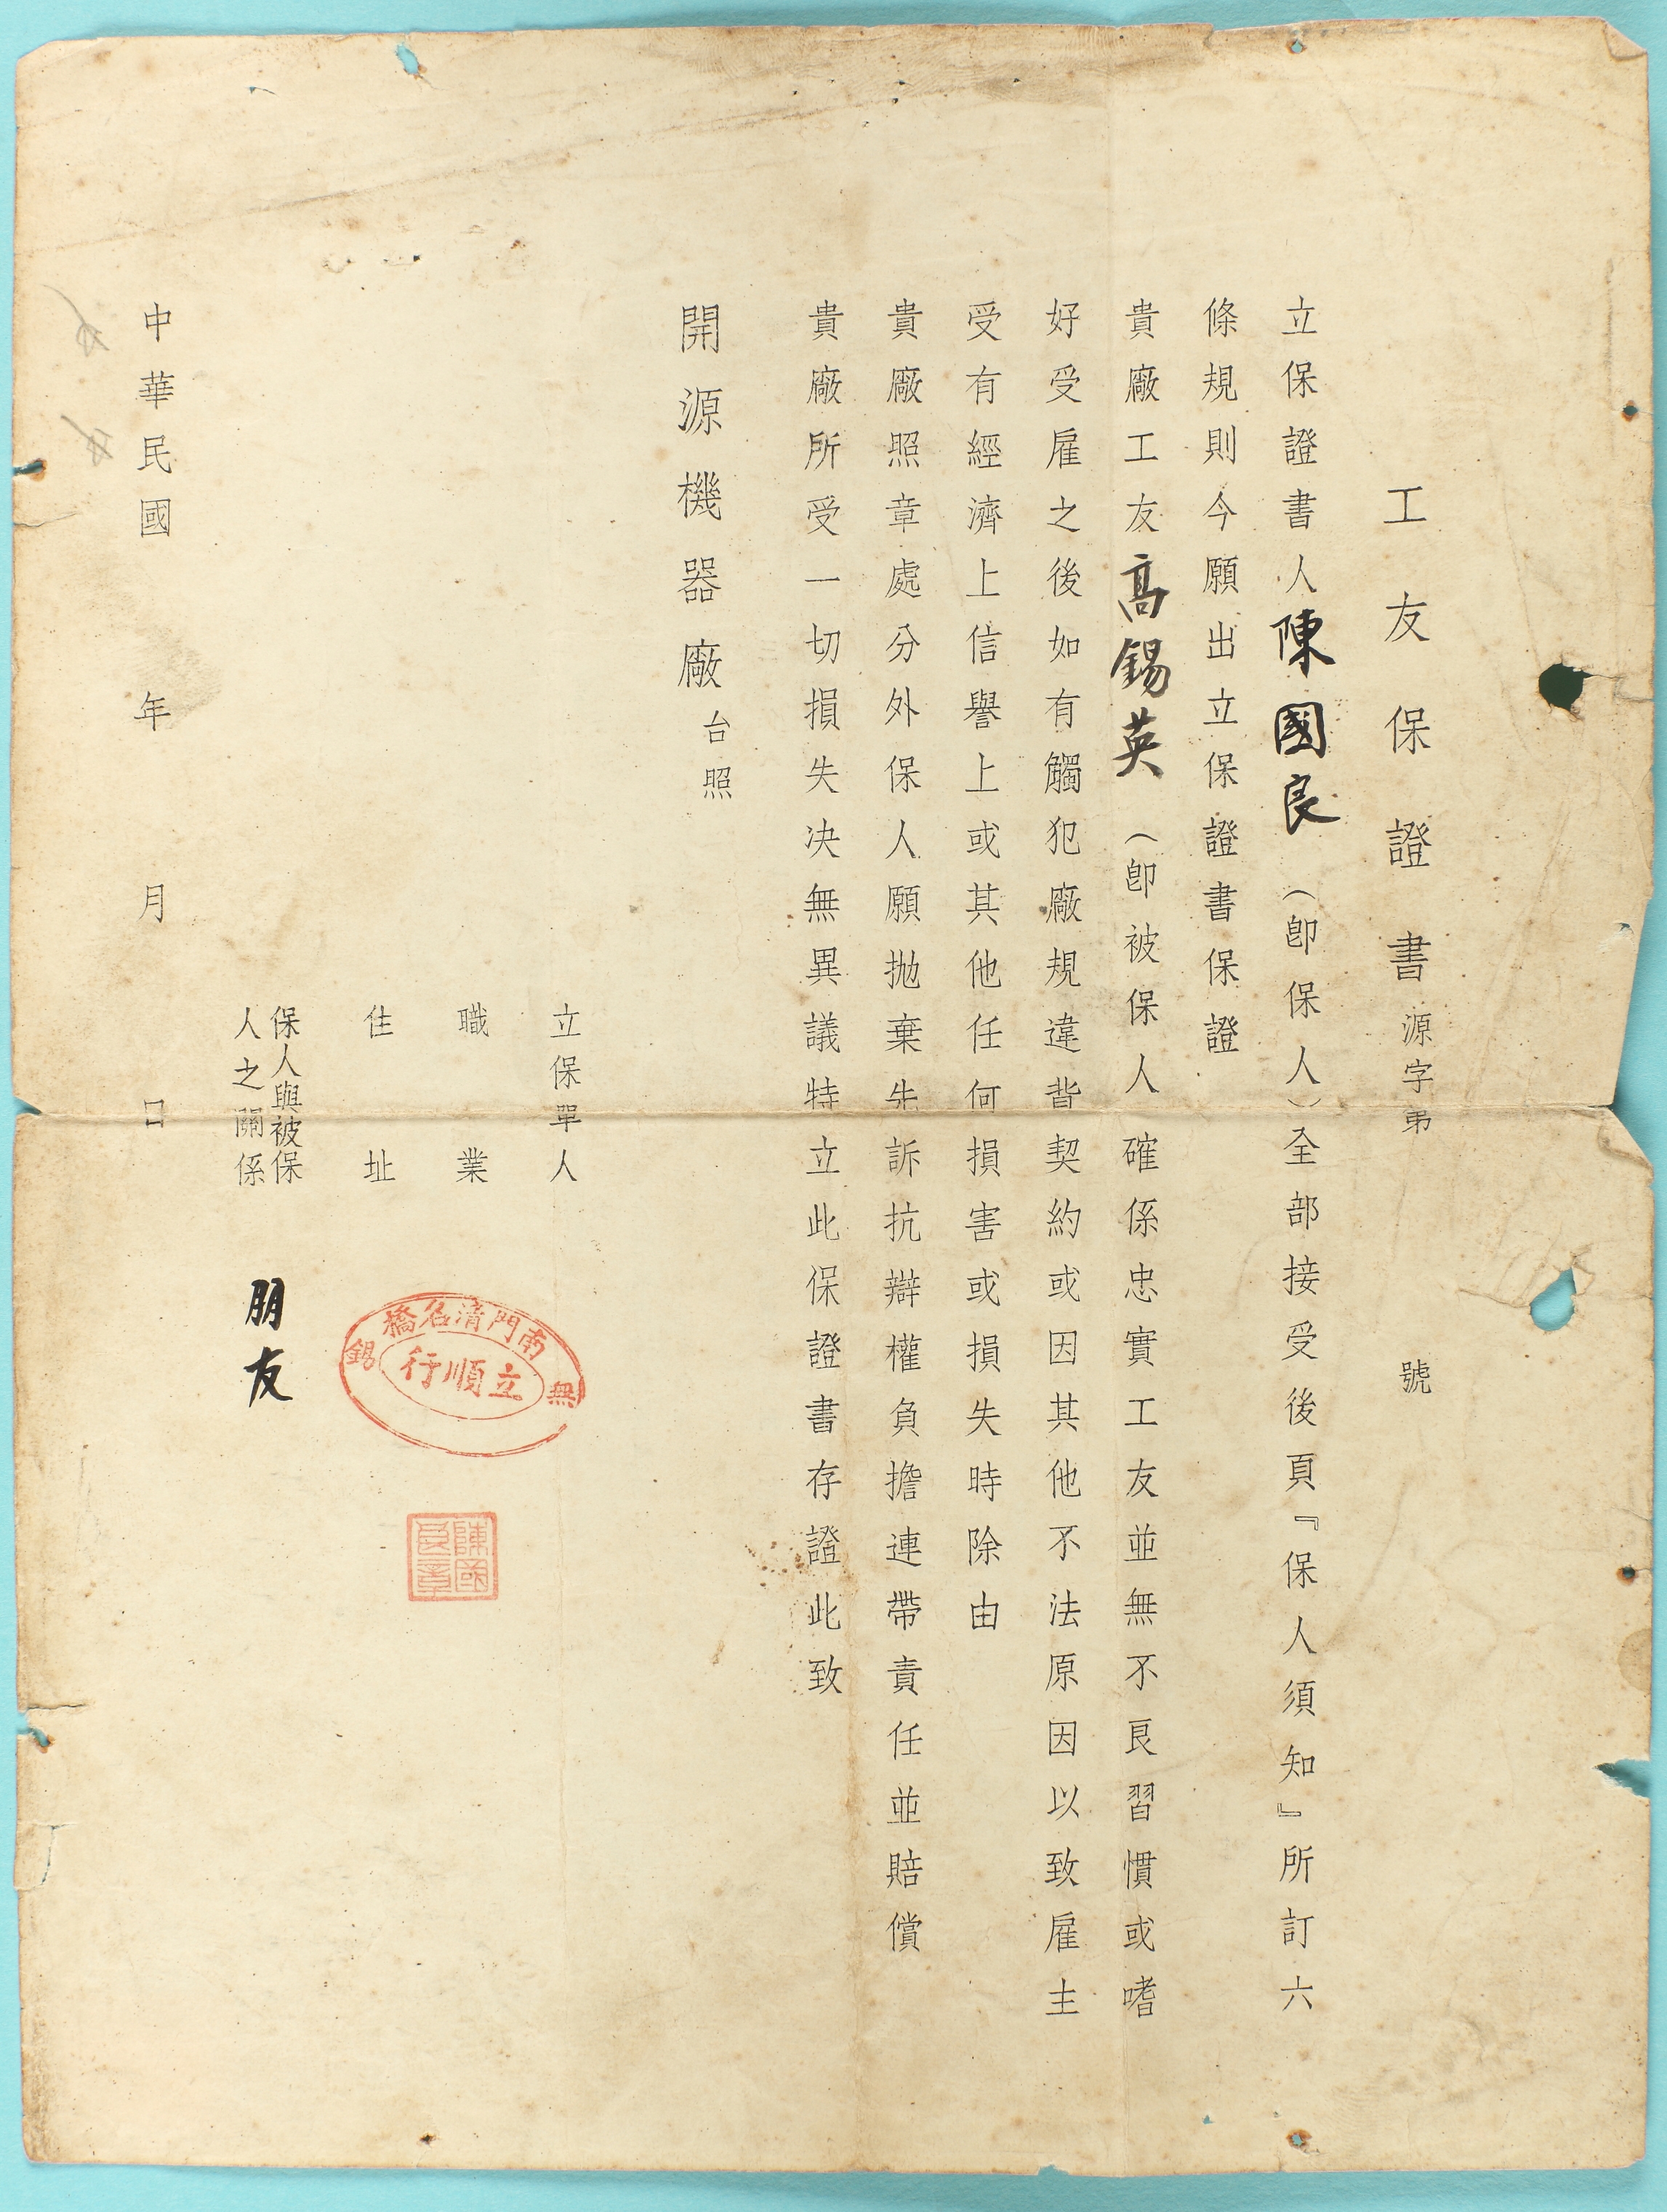 工友保證書源字弟 號
立保證書人陳國良（卽保人）全部接受後頁『保人須知』所訂六
條規則今願出立保證書保證
貴廠工友高錫英（卽被保人 確係忠實工友並無不良習慣或嗜
好受雇之後如有觸犯廠規違背契約或因其他不法原因以致雇主
受有經濟上信譽上或其他任何損害或損失時除由
貴廠照章處分外保人願拋棄先訴抗辯權負擔連帶責任並賠償
貴廠所受一切損失决無異議特立此保證書存證此致
開源機器廠台照
立保單人
職業
住址
無錫
南門清名橋
立順行
陳國良章
保人與被保
人之關係
朋友
中華民國 年 月 日